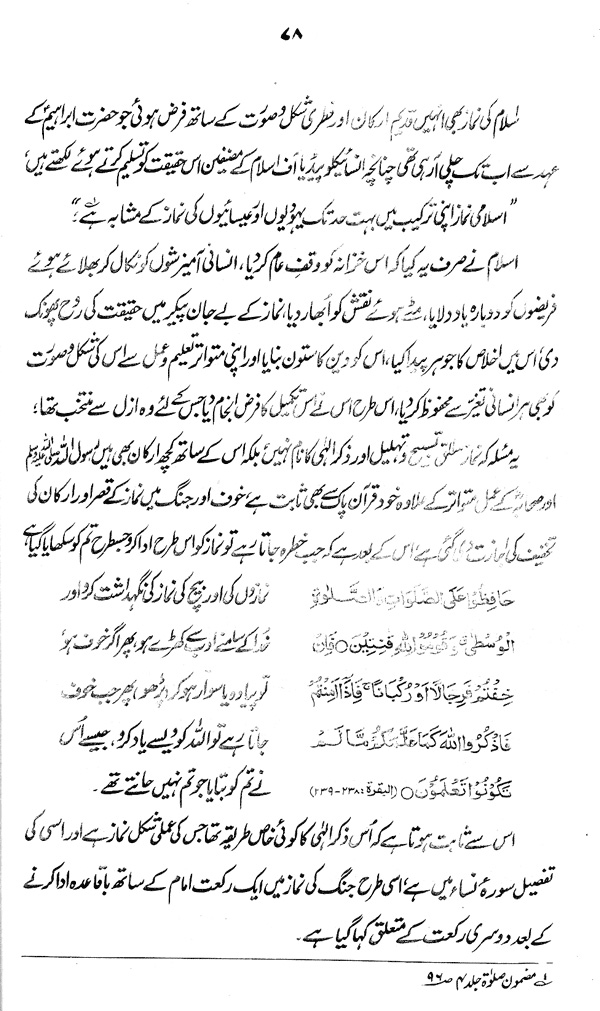 ۷۸
اسلام کی نماز بھی انہیں قدیم ارکان اور فطری شکل و صورت کے ساتھ فرض ہوئی جو حضرت ابراہیمؑ کے
عہد سے اب تک چلی آ رہی تھی چنانچہ انسائیکلو پیڈیا آف اسلام کے مصنفین اس حقیقت کو تسلیم کرتے ہوئے لکھتے ہیں
”اسلامی نماز اپنی ترکیب میں بہت حد تک یہودیوں اور عیسائیوں کی نماز کے مشابہ ہے“؎۱
اسلام نے صرف یہ کیا کہ اس خزانہ کو وقف عام کر دیا، انسانی آمیزشوں کو نکال کر بھلائے ہوئے
فریضوں کو دوبارہ یاد دلایا، مٹے ہوئے نقش کو ابھار دیا، نماز کے بے جان پیکر میں حقیقت کی روح پھونک
دی، اس میں اخلاص کا جوہر پیدا کیا، اس کو دین کا ستون بنایا اور اپنی متواتر تعلیم و عمل سے اس کی شکل و صورت
کو بھی ہر انسانی تغیر سے محفوظ کر دیا، اس طرح اس نے اس تکمیل کا فرض انجام دیا جس کے لئے وہ ازل سے منتخب تھا؛
یہ مسئلہ کہ نماز مطلق تسبیح و تہلیل اور ذکر الٰہی کا نام نہیں، بلکہ اس کے ساتھ کچھ ارکان بھی ہیں رسول اللہ ﷺ
اور صحابہؓ کے عمل متواتر کے علاوہ خود قرآن پاک سے بھی ثابت ہے، خوف اور جنگ میں نماز کے قصر اور ارکان کی
تخفیف کی اجازت دی گئی ہے، اس کے بعد ہے کہ جب خطرہ جاتا رہے تو نماز کو اس طرح ادا کرو جس طرح تم کو سکھایا گیا ہے
حَافِظُوْا عَلَى الصَّلَوَاتِ وَالصَّلٰوةِ نمازوں کی اور بیچ کی نماز کی نگہداشت کرو اور
الْوُسْطٰى وَقُوْمُوْا لِلّٰهِ قٰنِتِيْنَ○ فَاِنْ خدا کے سامنے ادب سے کھڑے ہو، پھر اگر خوف ہو
خِفْتُمْ فَرِجَالًا اَوْ رُكْبَانًا ۚ فَاِذَا اَمِنْتُمْ تو پیادہ یا سوار ہو کر پڑھو، پھر جب خوف
فَاذْكُرُوا اللّٰهَ كَمَا عَلَّمَكُمْ مَّا لَمْ جاتا رہے تو اللہ کو ویسے یاد کرو، جیسے اُس
تَكُوْنُوْا تَعْلَمُوْنَ○ (البقرة: ۲۳۸-۲۳۹) نے تم کو بتایا جو تم نہیں جانتے تھے۔
اس سے ثابت ہوتا ہے کہ اُس ذکر الٰہی کا کوئی خاص طریقہ تھا جس کی عملی شکل نماز ہے اور اسی کی
تفصیل سورۂ نساء میں ہے، اسی طرح جنگ کی نماز میں ایک رکعت امام کے ساتھ باقاعدہ ادا کرنے
کے بعد دوسری رکعت کے متعلق کہا گیا ہے۔
؎۱ مضمون صلوٰۃ جلد ۴ صـ ۹۶